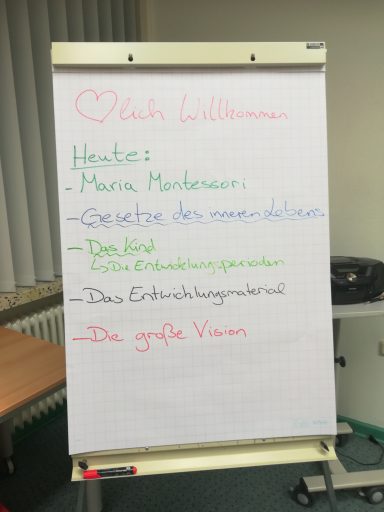 ♡lich Willkommen
Heute:
- Maria Montessori
- Gesetze des inneren Lebens
- Das Kind
↳ Die Entwicklungsperioden
- Das Entwicklungsmaterial
- Die große Vision